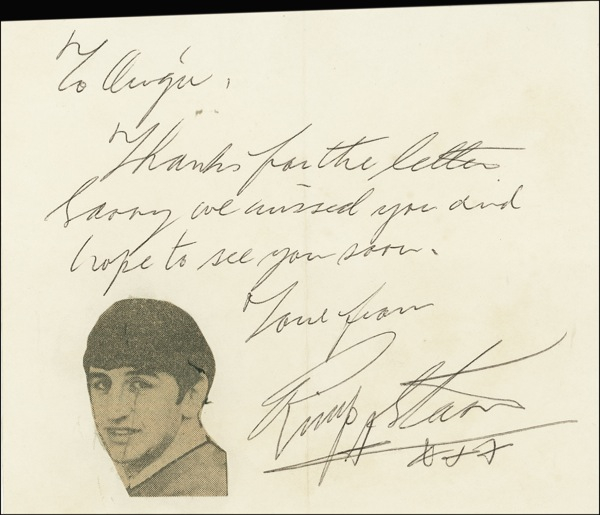 To Angie,
Thanks for the letter
Sorry we missed you and
hope to see you soon.
Love from
Ringo Starr
xxx